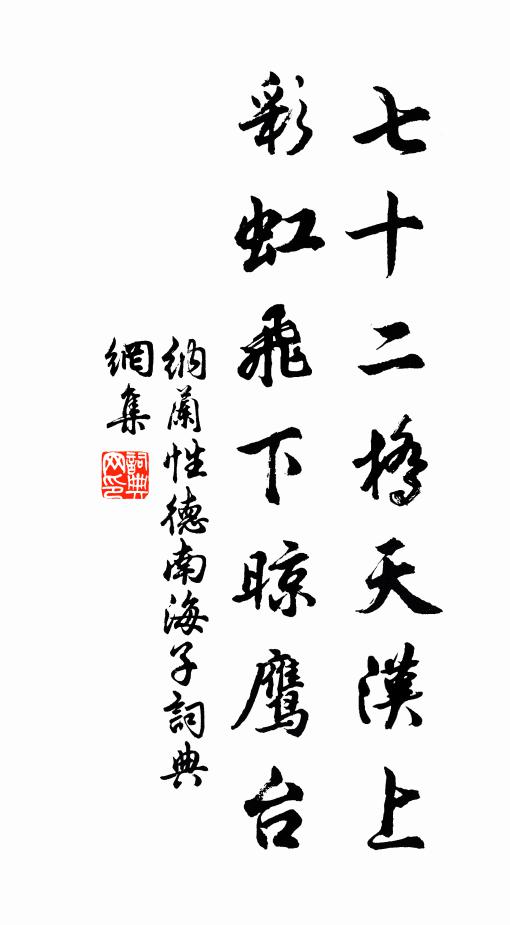 七十二橋天漢上
彩虹飛下晾鹰台
納蘭性德南海子詞典
網集
詞典網印